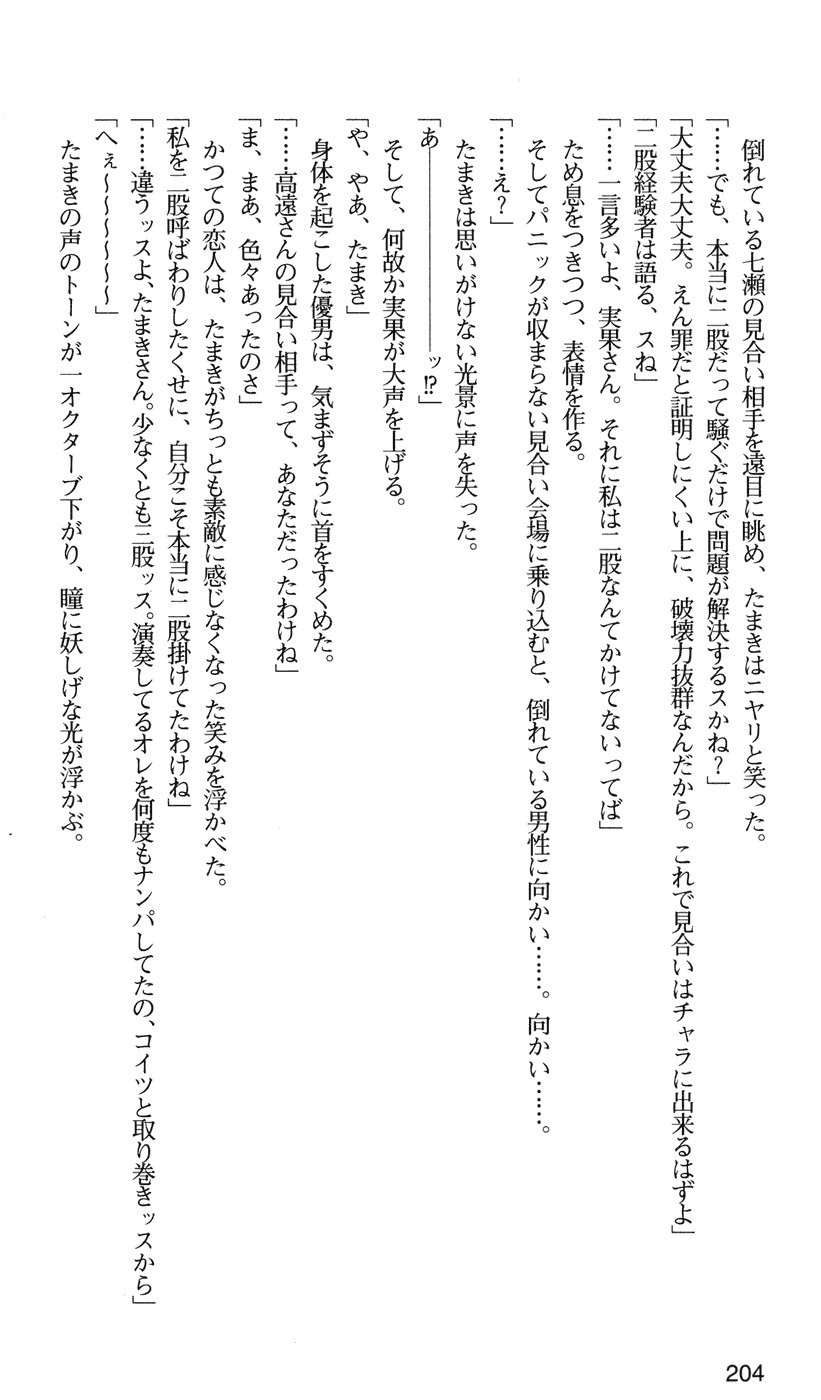 倒れている七瀬の見合い相手を遠目に眺め、たまきはニヤリと笑った。
「……でも、本当に二股だって騒ぐだけで問題が解決するスかね?」
「大丈夫大丈夫。えん罪だと証明しにくい上に、破壊力抜群なんだから。これで見合いはチャラに出来るはずよ」
「二股経験者は語る、スね」
「……一言多いよ、実果さん。それに私は二股なんてかけてないってば」
ため息をつきつつ、表情を作る。
そしてパニックが収まらない見合い会場に乗り込むと、倒れている男性に向かい……。向かい……。
「……え?」
たまきは思いがけない光景に声を失った。
「あ――――――――ッ!?」
そして、何故か実果が大声を上げる。
「や、やあ、たまき」
身体を起こした優男は、気まずそうに首をすくめた。
「……高遠さんの見合い相手って、あなただったわけね」
「ま、まあ、色々あったのさ」
かつての恋人は、たまきがちっとも素敵に感じなくなった笑みを浮かべた。
「私を二股呼ばわりしたくせに、自分こそ本当に二股掛けてたわけね」
「……違うッスよ、たまきさん。少なくとも三股ッス。演奏してるオレを何度もナンパしてたの、コイツと取り巻きッスから」
「へぇ〜〜〜〜〜〜」
たまきの声のトーンが一オクターブ下がり、瞳に妖しげな光が浮かぶ。
204